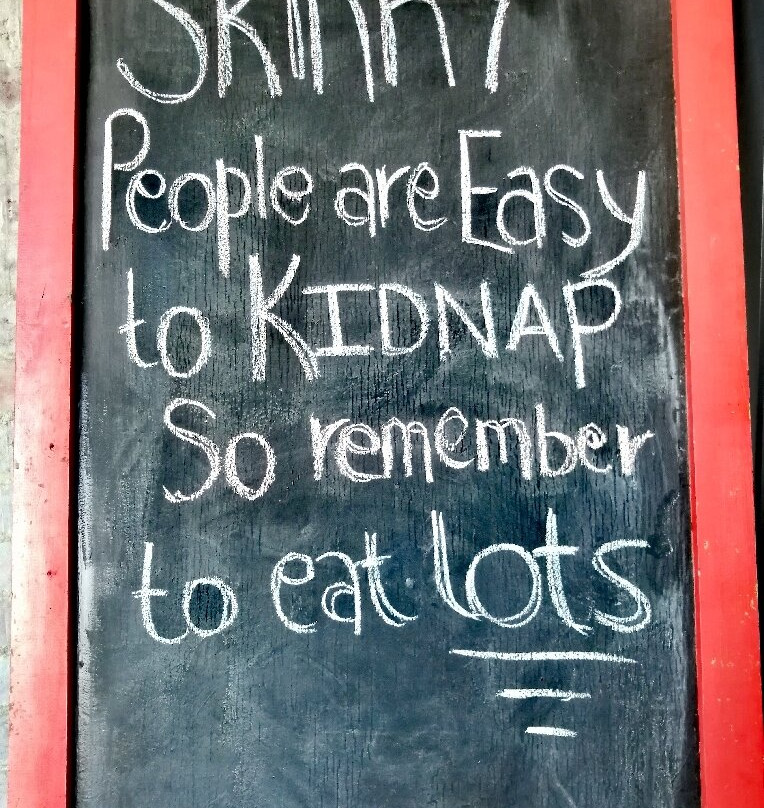 SKINNY
People are Easy
to KIDNAP
So remember
to eat lots